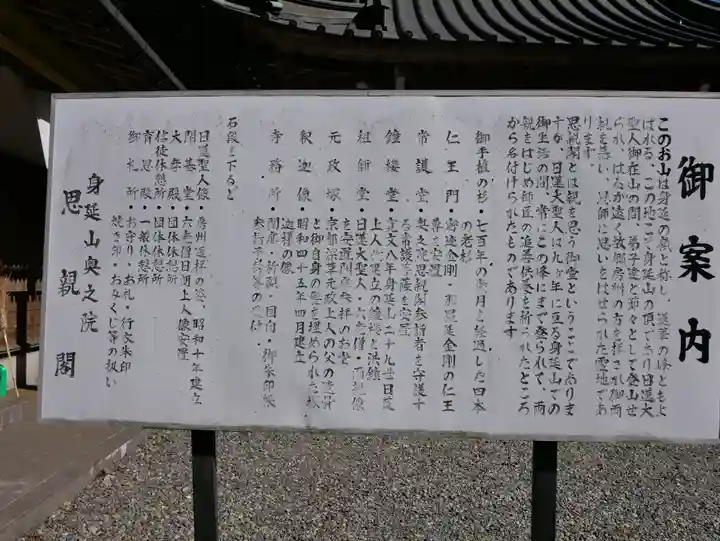 御案内
このお山は身延の嶺と称し、蓮華の峰ともよ
ばれる、この地こそ身延山の頂であり日蓮大
聖人御在山の間、弟子達と弟々として登山せ
られ、はるか遠く故郷房州の方を拝され御両
親を慕い、恩師に思いをはせられた霊地であ
ります
思親閣とは親を思う御堂ということでありま
すが、日蓮大聖人は九ヶ年に亘る身延山での
御生活の間、常にこの峰にまで登られて、両
親をはじめ師匠の追善供養を祈られたところ
から名付けられたものであります
御手植の杉・七百年の歳月と経過した四本
の老杉
仁王門・密迹金剛・那羅延金剛の仁王
尊を安置
常護堂・奥之院思親閣参詣者を守護す
る常護菩薩を安置
鐘楼堂・寛文八年身延山二十九世日莚
上人代建立の鐘楼と洪鐘
祖師堂・日蓮大聖人・六老僧・両親像
を安置開帳参拝のお堂
元政塚・京都深草元政上人の父の遺骨
と御自身の髪を埋められた塚
釈迦像・昭和四十五年四月建立
迦释の像
寺務所・開扉・祈願・回向・御朱印帳
参拝各種等の受付
石段を下ると
日蓮聖人像・房州遥拝の姿、昭和十年建立
開基堂・六老僧日朗上人像安置
大孝殿・団体休憩所
信徒休憩所・団体休憩所
育恩殿・一般休憩所
御札所・お守り・お札・行衣朱印
焼き印・おみくじ等の扱い
身延山奥之院
思親閣